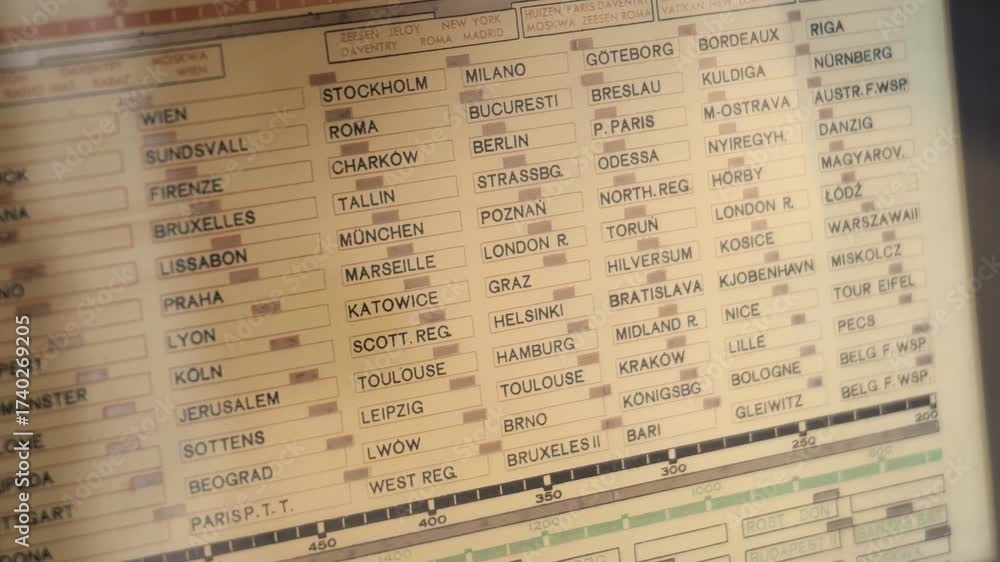 ZEESEN JELOY NEW YORK
DAVENTRY ROMA MADRID
HUIZEN PARIS DAVENTRY
MOSKWA ZEESEN ROMA
WIEN
SUNDSVALL
FIRENZE
BRUXELLES
LISSABON
PRAHA
LYON
KÖLN
JERUSALEM
SOTTENS
BEOGRAD
PARIS P.T.T.
STOCKHOLM
ROMA
CHARKÓW
TALLIN
MÜNCHEN
MARSEILLE
KATOWICE
SCOTT. REG.
TOULOUSE
LEIPZIG
LWÓW
WEST REG.
MILANO
BUCURESTI
BERLIN
STRASSBG.
POZNAŃ
LONDON R.
GRAZ
HELSINKI
HAMBURG
TOULOUSE
BRNO
BRUXELES II
GÖTEBORG
BRESLAU
P. PARIS
ODESSA
NORTH. REG
TORUŃ
HILVERSUM
BRATISLAVA
MIDLAND R.
KRAKÓW
KÖNIGSBG
BARI
BORDEAUX
KULDIGA
M-OSTRAVA
NYIREGYH.
HÖRBY
LONDON R.
KOSICE
KJOBENHAVN
NICE
LILLE
BOLOGNE
GLEIWITZ
RIGA
NÜRNBERG
AUSTR. F. WSP.
DANZIG
MAGYAROV.
ŁÓDŹ
WARSZAWA II
MISKOLCZ
TOUR EIFEL
PECS
BELG F. WSP.
BELG F. WSP.
450 400 350 300 250 200
1200 1000 800